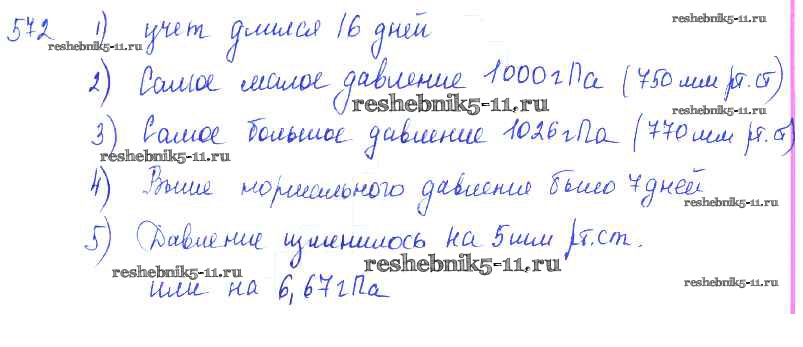 572 1) учет длился 16 дней
reshebnik5-11.ru reshebnik5-11.ru
2) Самое малое давление 1000 гПа (750 мм рт.ст)
reshebnik5-11.ru reshebnik5-11.ru
3) Самое большое давление 1026 гПа (770 мм рт.ст)
reshebnik5-11.ru
4) Выше нормального давление было 7 дней
reshebnik5-11.ru
5) Давление изменилось на 5 мм рт.ст.
reshebnik5-11.ru reshebnik5-11.ru
или на 6,67 гПа
reshebnik5-11.ru